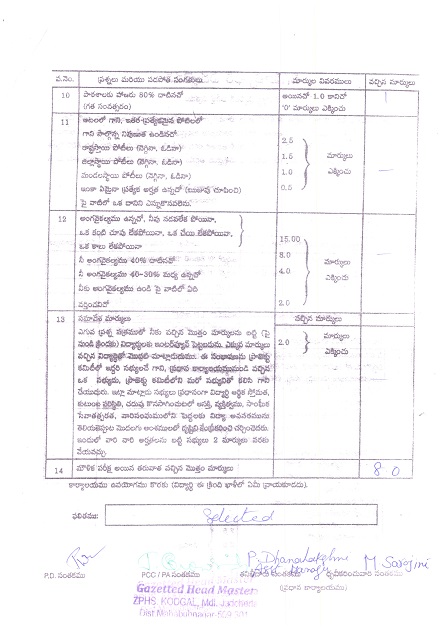 వ.నెం. ప్రశ్నలు మరియు సదపోత సంగతులు మార్కుల వివరములు వచ్చిన మార్కులు
10 పాఠశాలకు హాజరు 80% దాటినచో అయినచో 1.0 కానిచో
(గత సంవత్సరం) '0' మార్కులు ఎక్కించు
11 ఆటలలో గాని, ఇతర ప్రత్యేకమైన పోటీలలో
గాని పాల్గొన్న నిపుణత ఉండినచో
రాష్ట్రస్థాయి పోటీలు (నెగ్గినా, ఓడినా) 2.5
జిల్లాస్థాయి పోటీలు (నెగ్గినా, ఓడినా) 1.5 మార్కులు
మండలస్థాయి పోటీలు (నెగ్గినా, ఓడినా) 1.0 ఎక్కించు
ఇంకా ఏమైనా ప్రత్యేక అర్హత ఉన్నచో (ఋజువు చూపించి) 0.5
పై వాటిలో ఒక దానిని ఎన్నుకొనవలెను.
12 అంగవైకల్యము ఉన్నచో, నీవు నడవలేక పోయినా,
ఒక కంటి చూపు లేకపోయినా, ఒక చేయి లేకపోయినా,
ఒక కాలు లేకపోయినా 15.00
నీ అంగవైకల్యము 40% దాటినచో 8.0 మార్కులు
నీ అంగవైకల్యము 40-30% మధ్య ఉన్నచో 4.0 ఎక్కించు
నీకు అంగవైకల్యము ఉండి పై వాటిలో ఏది
వర్తించనిచో 2.0
13 సమావేశ మార్కులు వచ్చిన మార్కులు
ఎగువ ప్రశ్న పత్రములో నీకు వచ్చిన మొత్తం మార్కులను బట్టి (పై 2.0 మార్కులు
నుండి క్రిందకు) విద్యార్థులకు ఇంటర్వ్యూస్ పెట్టబడును. ఎక్కువ మార్కులు ఎక్కించు
వచ్చిన విద్యార్థితో మొదట మాట్లాడుతాము. ఈ సంభాషణను ప్రాజెక్టు
కమిటీలో ఇద్దరి సభ్యులచే గాని, ప్రధాన కార్యాలయమునుండి వచ్చిన
ఒక సభ్యుడు, ప్రాజెక్టు కమిటీలోని మరో సభ్యునితో కలిసి గాని
చేయుదురు. ఇలా మాట్లాడు సభ్యులు ప్రధానంగా విద్యార్థి ఆర్థిక స్తోమత,
కుటుంబ పరిస్థితి, చదువు కొనసాగించుటలో ఆసక్తి, వ్యక్తిత్వము, సాంఘిక
ఇందులో వారి వారి అర్హతలను బట్టి సభ్యులు 2 మార్కులు వరకు
వేయవచ్చు.
14 మౌళిక పరీక్ష అయిన తరువాత వచ్చిన మొత్తం మార్కులు 8.0
కార్యాలయము ఉపయోగము కొరకు (విద్యార్థి ఈ క్రింది ఖాళీలో ఏమీ వ్రాయకూడదు).
ఫలితము: Selected
P. Dhanalakshmi M Sarojini
P.D. సంతకము PCC / PA సంతకము
(ప్రధాన కార్యాలయము)
Gazetted Head Master
ZPHS. KODGAL, Mdl. Jadcherla
Dist. Mahabubnagar-509 301